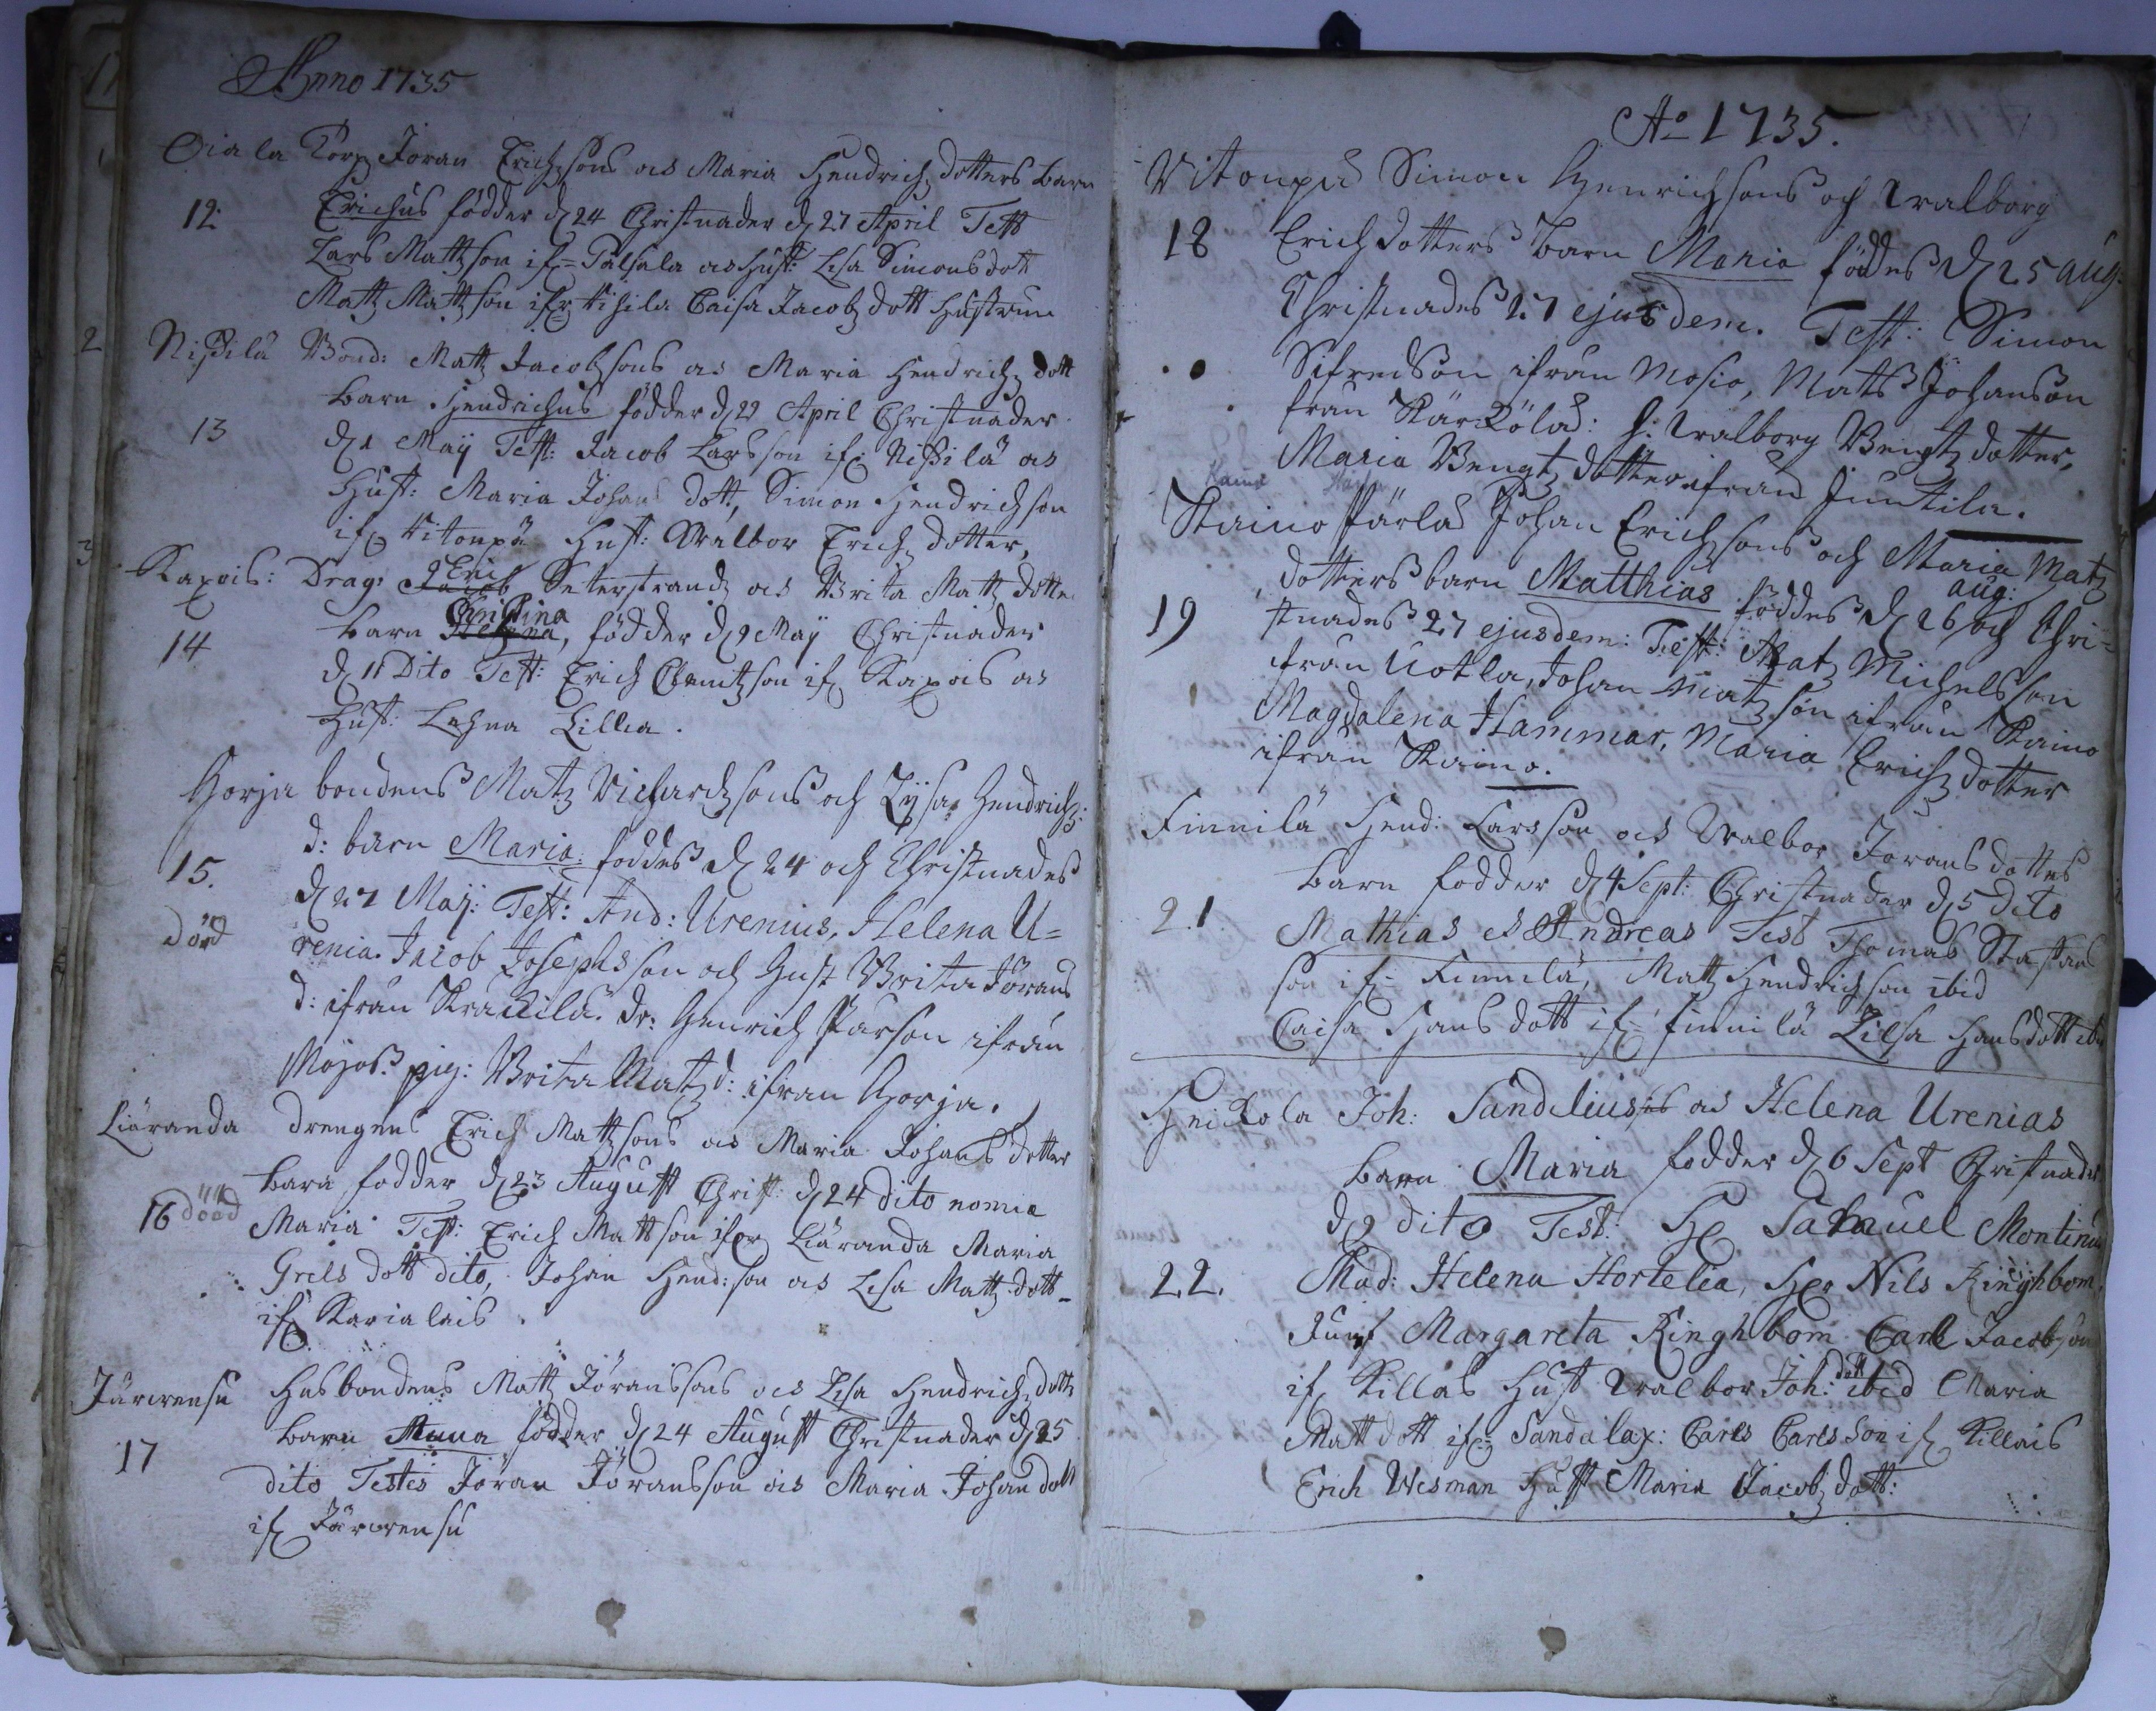 Anno 1735
Oiala Torp Joran Erichsons os Maria Hendrichs dotters barn
12. Erichus födder d 24 Christnader d 27 April Test
Lars Mattson if Palsala os Hust: Lisa Simons dott
Matz Mattson ifr Caisa Jacobs dott Hustrun
Nissilä Bond: Matz Jacobsons os Maria Hendrichs dott
barn Hendrichus födder d 29 April Christnader
13 d 1 Maij Test: Jacob Larsson if: Nissilä os
Hust: Maria Johans dott, Simon Hendrichson
if Vitonpä Hust: Walbor Erichs dotter,
Kaxois: Drag: Jacob Eric Seterstrand os Brita Matz dotte
Christina
14 barn Helena, födder d 9 Maij Christnader
d 11 Dito Test: Erich Clemetson if Kaxois os
Hust: Lehna Lillia.
Horja bondens Matz Richardsons och Lysa Hendrichs:
d: barn Maria: foddes d 24 och Christnades
15. d 27 Maij: Test: And: Urenius, Helena U=
död renia. Jacob Josephsson och Hust Brita Jörans
d: ifrån Krackila. dr: Henrich Pärson ifrån
pig: Brita Matz d: ifran Horja.
Liäranda drengens Erich Mattsons os Maria Johans dotter
barn fodder d 23 August Christ: d 24 dito nomie
16 dööd Maria Test: Erich Mattson ifr Liäranda Maria
Grels dott dito, Johan Hend: son os Lisa Matz dott
if Karialais.
Järwensu Husbondens Matz Jöranssons os Lisa Hendrichs dott
barn Anna födder d 24 August Christnader d 25
17 dito Testes Jöran Jöransson os Maria Johans dott
if Järwensu
Ao 1735.
Vitonpä Simon Henrichsons och Walborg
18 Erichsdotters barn Maria föddes d 25 aug:
Christnades 27 ejusdem. Test: Simon
Sifredson ifrån Mosio, Matts Johanson
från Kärkölä: h: Walborg Bengts dotter,
Maria Bengts dotter ifrån Juntila.
Kaino
Kaino Pärlä Johan Erichsons och Maria Matz
dotters barn Matthias föddes d 26 aug: och Chri=
19 stnades 27 ejusdem: Test: Matz Michelsson
ifrån Uotla, Johan Matzson ifrån Kaino
Magdalena Hammar, Maria Erichs dotter
ifrån Kaino.
Finnilä Hend: Larsson os Walbor Jorans dotters
barn fodder d 4 Sept: Christnader d 5 dito
21. Mathias et Andreas Test Thomas Staffans
son if Finnilä, Matz Hendrichson ibid
Caisa Hans dott if finnilä Lilsa Hansdott
Heickola Joh: Sandelius os Helena Urenias
barn Maria fodder d 6 Sept Christnader
d 9 dito Test: Hr Samuel Montinus
22. Mad: Helena Hortelia, Hr Nils Ringhbom,
Junf Margareta Ringhbom Carl Jacobson
if Killais Hust Walbor Joh: dott ibid Maria
Matt dott ifr Sandalax: Carls Carlsson if Killais
Erich Wesman Hust Maria Jacobs dott: